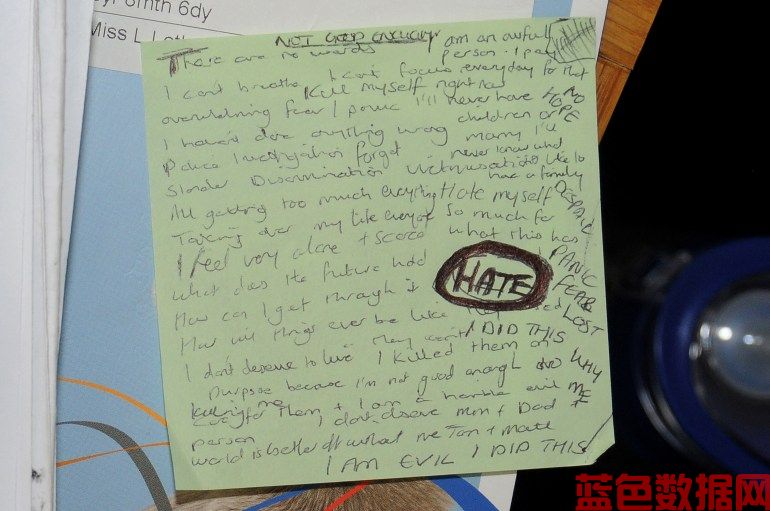 Smith 6dy
Miss L
NOT GOOD ENOUGH
There are no words
am an awful
person
I cant breathe I cant focus
everyday for that
Kill myself right now
overwhelming fear / panic I'll never have
NO
HOPE
I havent done anything wrong
children or
marry I'll
Police Investigation forget
never know what
Slander Discrimination Victimisation
like to
have a family
All getting too much everything
Hate myself
DESPAIR
Taking over my life
so much for
what this has
I feel very alone + scared
What does the future hold
HATE
PANIC
FEAR
LOST
How can I get through it
How will things ever be like
I DID THIS
I dont deserve to live
I killed them on
purpose because I'm not good enough to
WHY
ME
care for them + I am a horrible evil
person
I dont deserve Mum + Dad +
world is better off without me
I AM EVIL I DID THIS
蓝色数据网